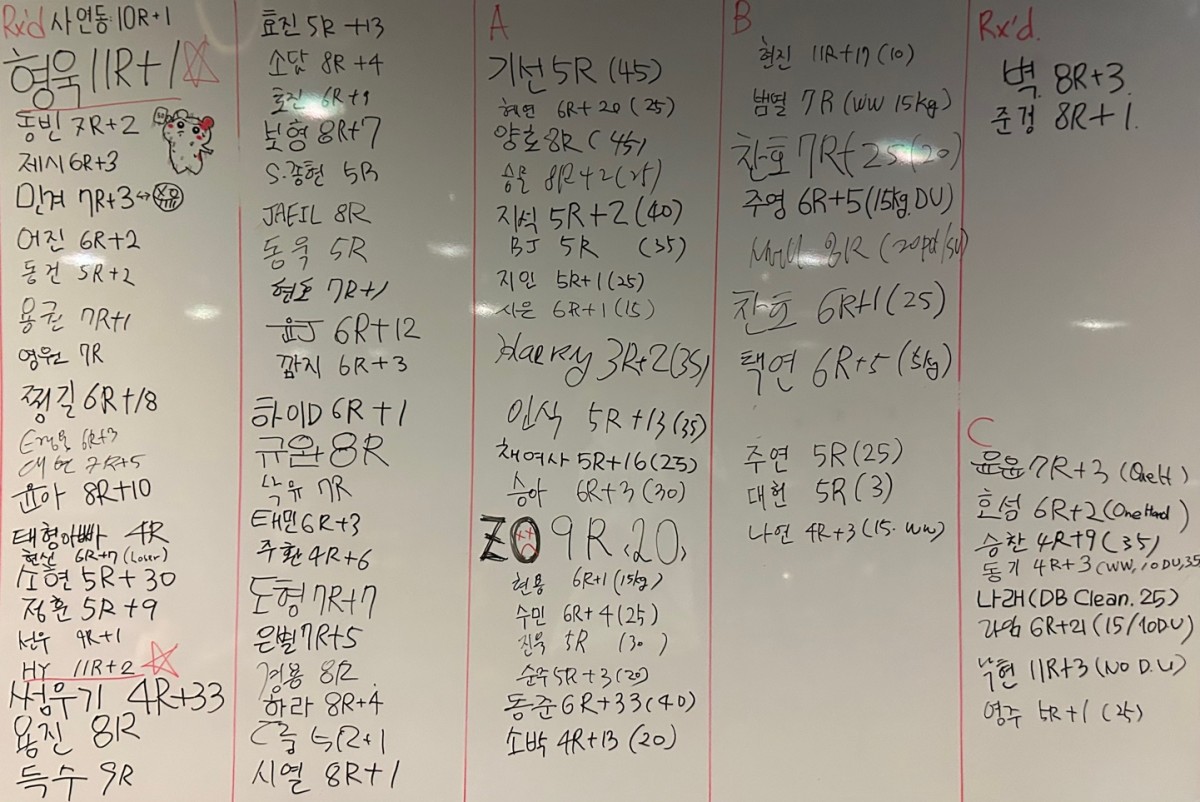 Rx'd 사연동:10R+1
형욱 11R+1
동빈 7R+2
제시 6R+3
민겨 7R+3
어진 6R+2
동건 5R+2
용균 7R+1
영원 7R
찡길 6R+18
6R+3
대현 7R+5
윤아 8R+10
태형아빠 4R
현신 6R+7 (Loser)
소현 5R+30
정훈 5R+9
선우 9R+1
HY 11R+2
썸우기 4R+33
용진 8R
득수 9R
효진 5R+13
소담 8R+4
효진 6R+9
보형 8R+7
S.종현 5R
JAEIL 8R
동욱 5R
형호 7R+1
윤J 6R+12
깜지 6R+3
하이D 6R+1
규완 8R
낙유 7R
태민 6R+3
주환 4R+6
도형 7R+7
은빌 7R+5
경용 8R
하라 8R+4
C룹
시열 8R+1
A
기선 5R (45)
현연 6R+20 (25)
양호 8R (45)
승물 8R+2 (25)
지석 5R+2 (40)
BJ 5R (35)
지인 5R+1 (25)
시은 6R+1 (15)
Harry 3R+2 (35)
인식 5R+13 (35)
채여사 5R+16 (25)
승아 6R+3 (30)
ZO 9R (20)
현용 6R+1 (15kg)
수민 6R+4 (25)
진욱 5R (30)
순주 5R+3 (20)
동준 6R+33 (40)
소박 4R+13 (20)
B
현진 11R+17 (10)
범열 7R (WW 15kg)
찬호 7R+25 (20)
주영 6R+5 (15kg. DU)
8R (20pd/SU)
찬호 6R+1 (25)
택연 6R+5
주연 5R (25)
대헌 5R (3)
나연 4R+3 (15. WW)
Rx'd.
벽 8R+3
준경 8R+1
C
윤윤 7R+3 (One H)
호섬 6R+2 (One Hand)
승찬 4R+9 (35)
동기 4R+3 (WW, 10DU, 35
나래 (DB Clean. 25)
라임 6R+21 (15/10DU)
낙현 11R+3 (NO D.U)
영주 5R+1 (25)